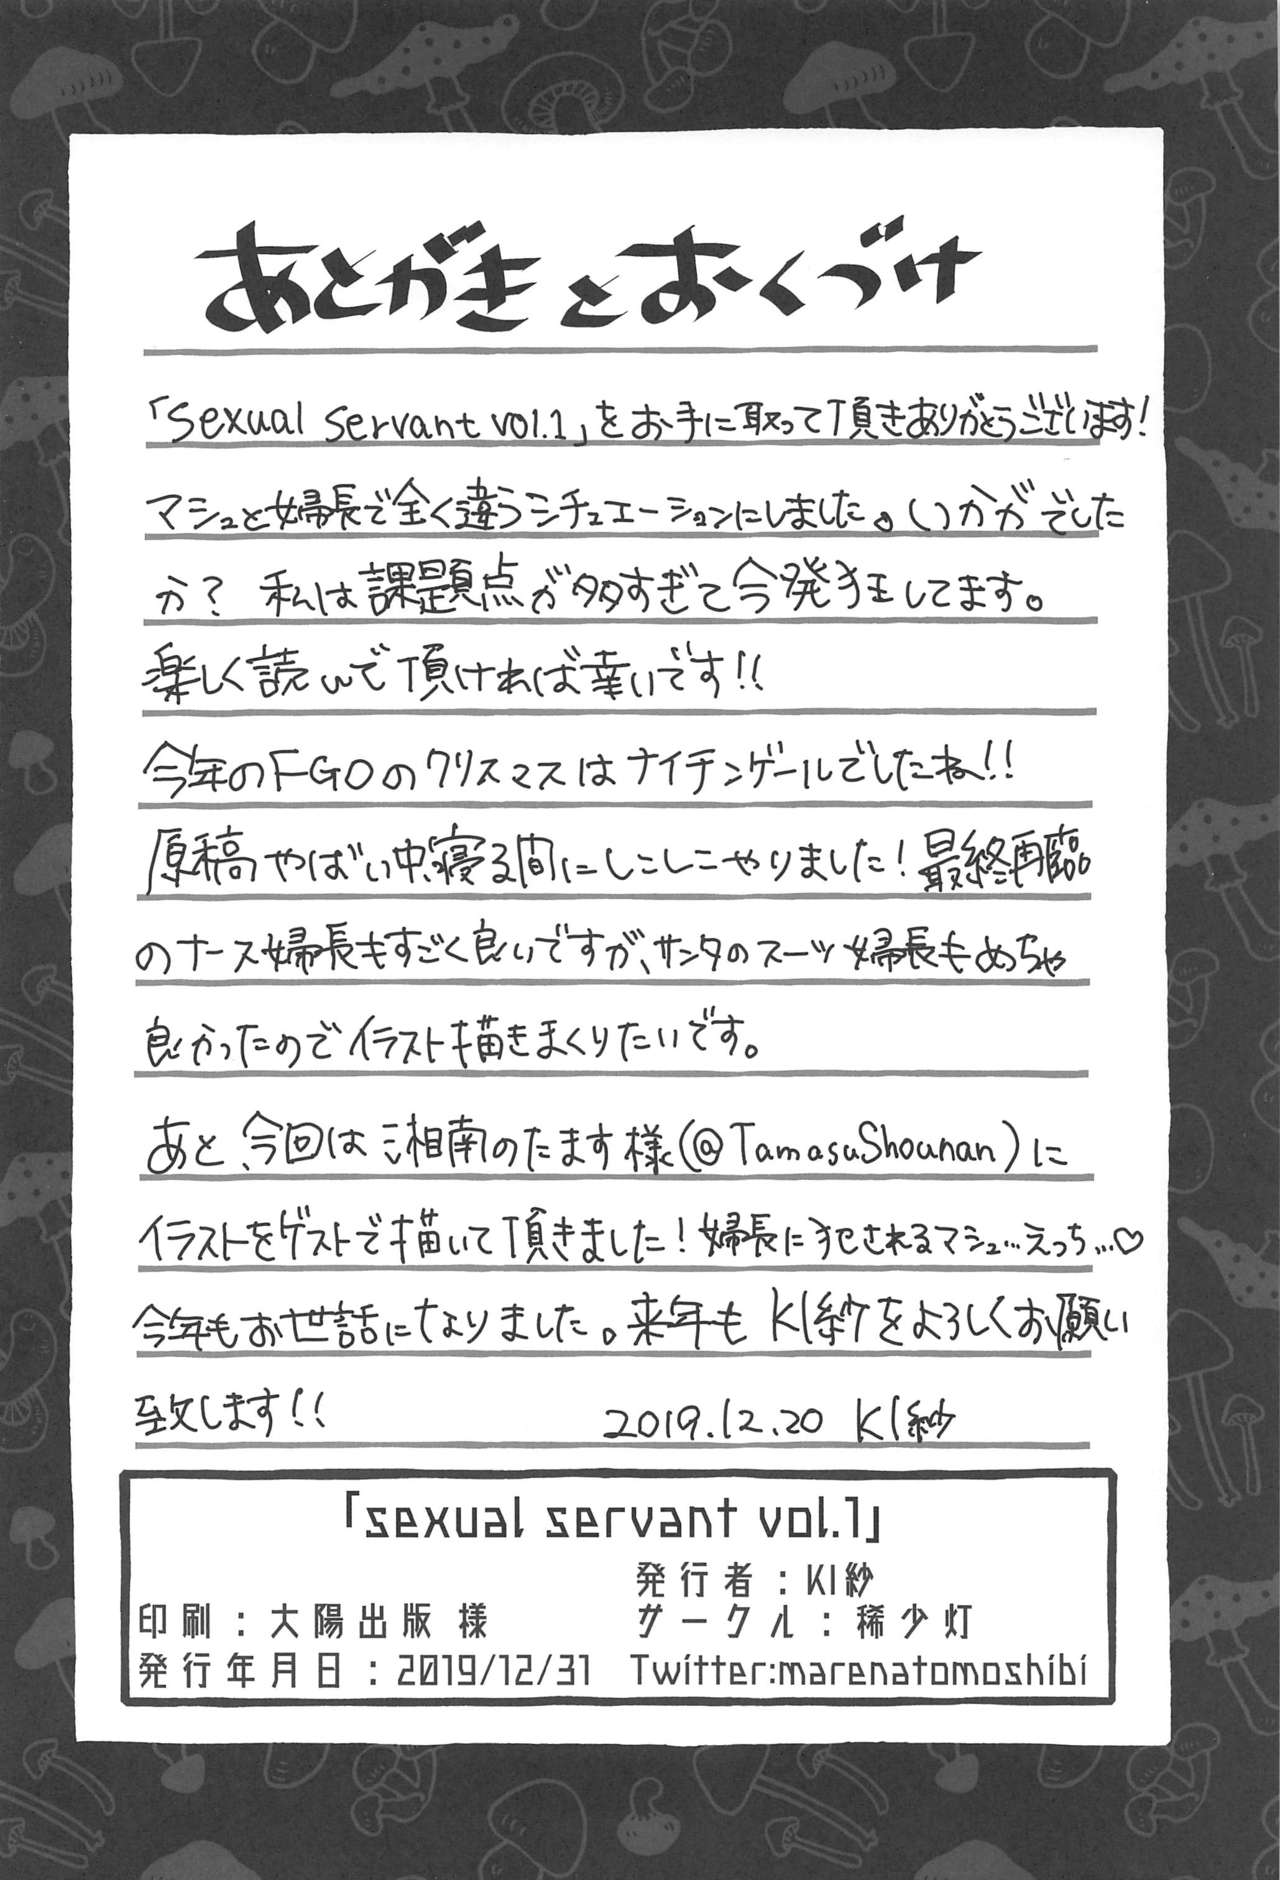 あとがきとおくづけ
「sexual servant vol.1」をお手に取って頂きありがとうございます!
マシュと婦長で全く違うシチュエーションにしました。いかがでした
か? 私は課題点が多すぎて今発狂してます。
楽しく読んで頂ければ幸いです!!
今年のFGOのクリスマスはナイチンゲールでしたね!!
原稿やばい中、寝る間にしこしこやりました!最終再臨
のナース婦長もすごく良いですが、サンタのスーツ婦長もめっちゃ
良かったのでイラスト描きまくりたいです。
あと、今回は湘南のたます様(@TamasuShounan)に
イラストをゲストで描いて頂きました!婦長に犯されるマシュ…えっち…♡
今年もお世話になりました。来年もKI紗をよろしくお願い
致します!!
2019.12.20 KI紗
「sexual servant vol.1」
発行者:KI紗
印刷:大陽出版 様 サークル:稀少灯
発行年月日:2019/12/31 Twitter:marenatomoshibi